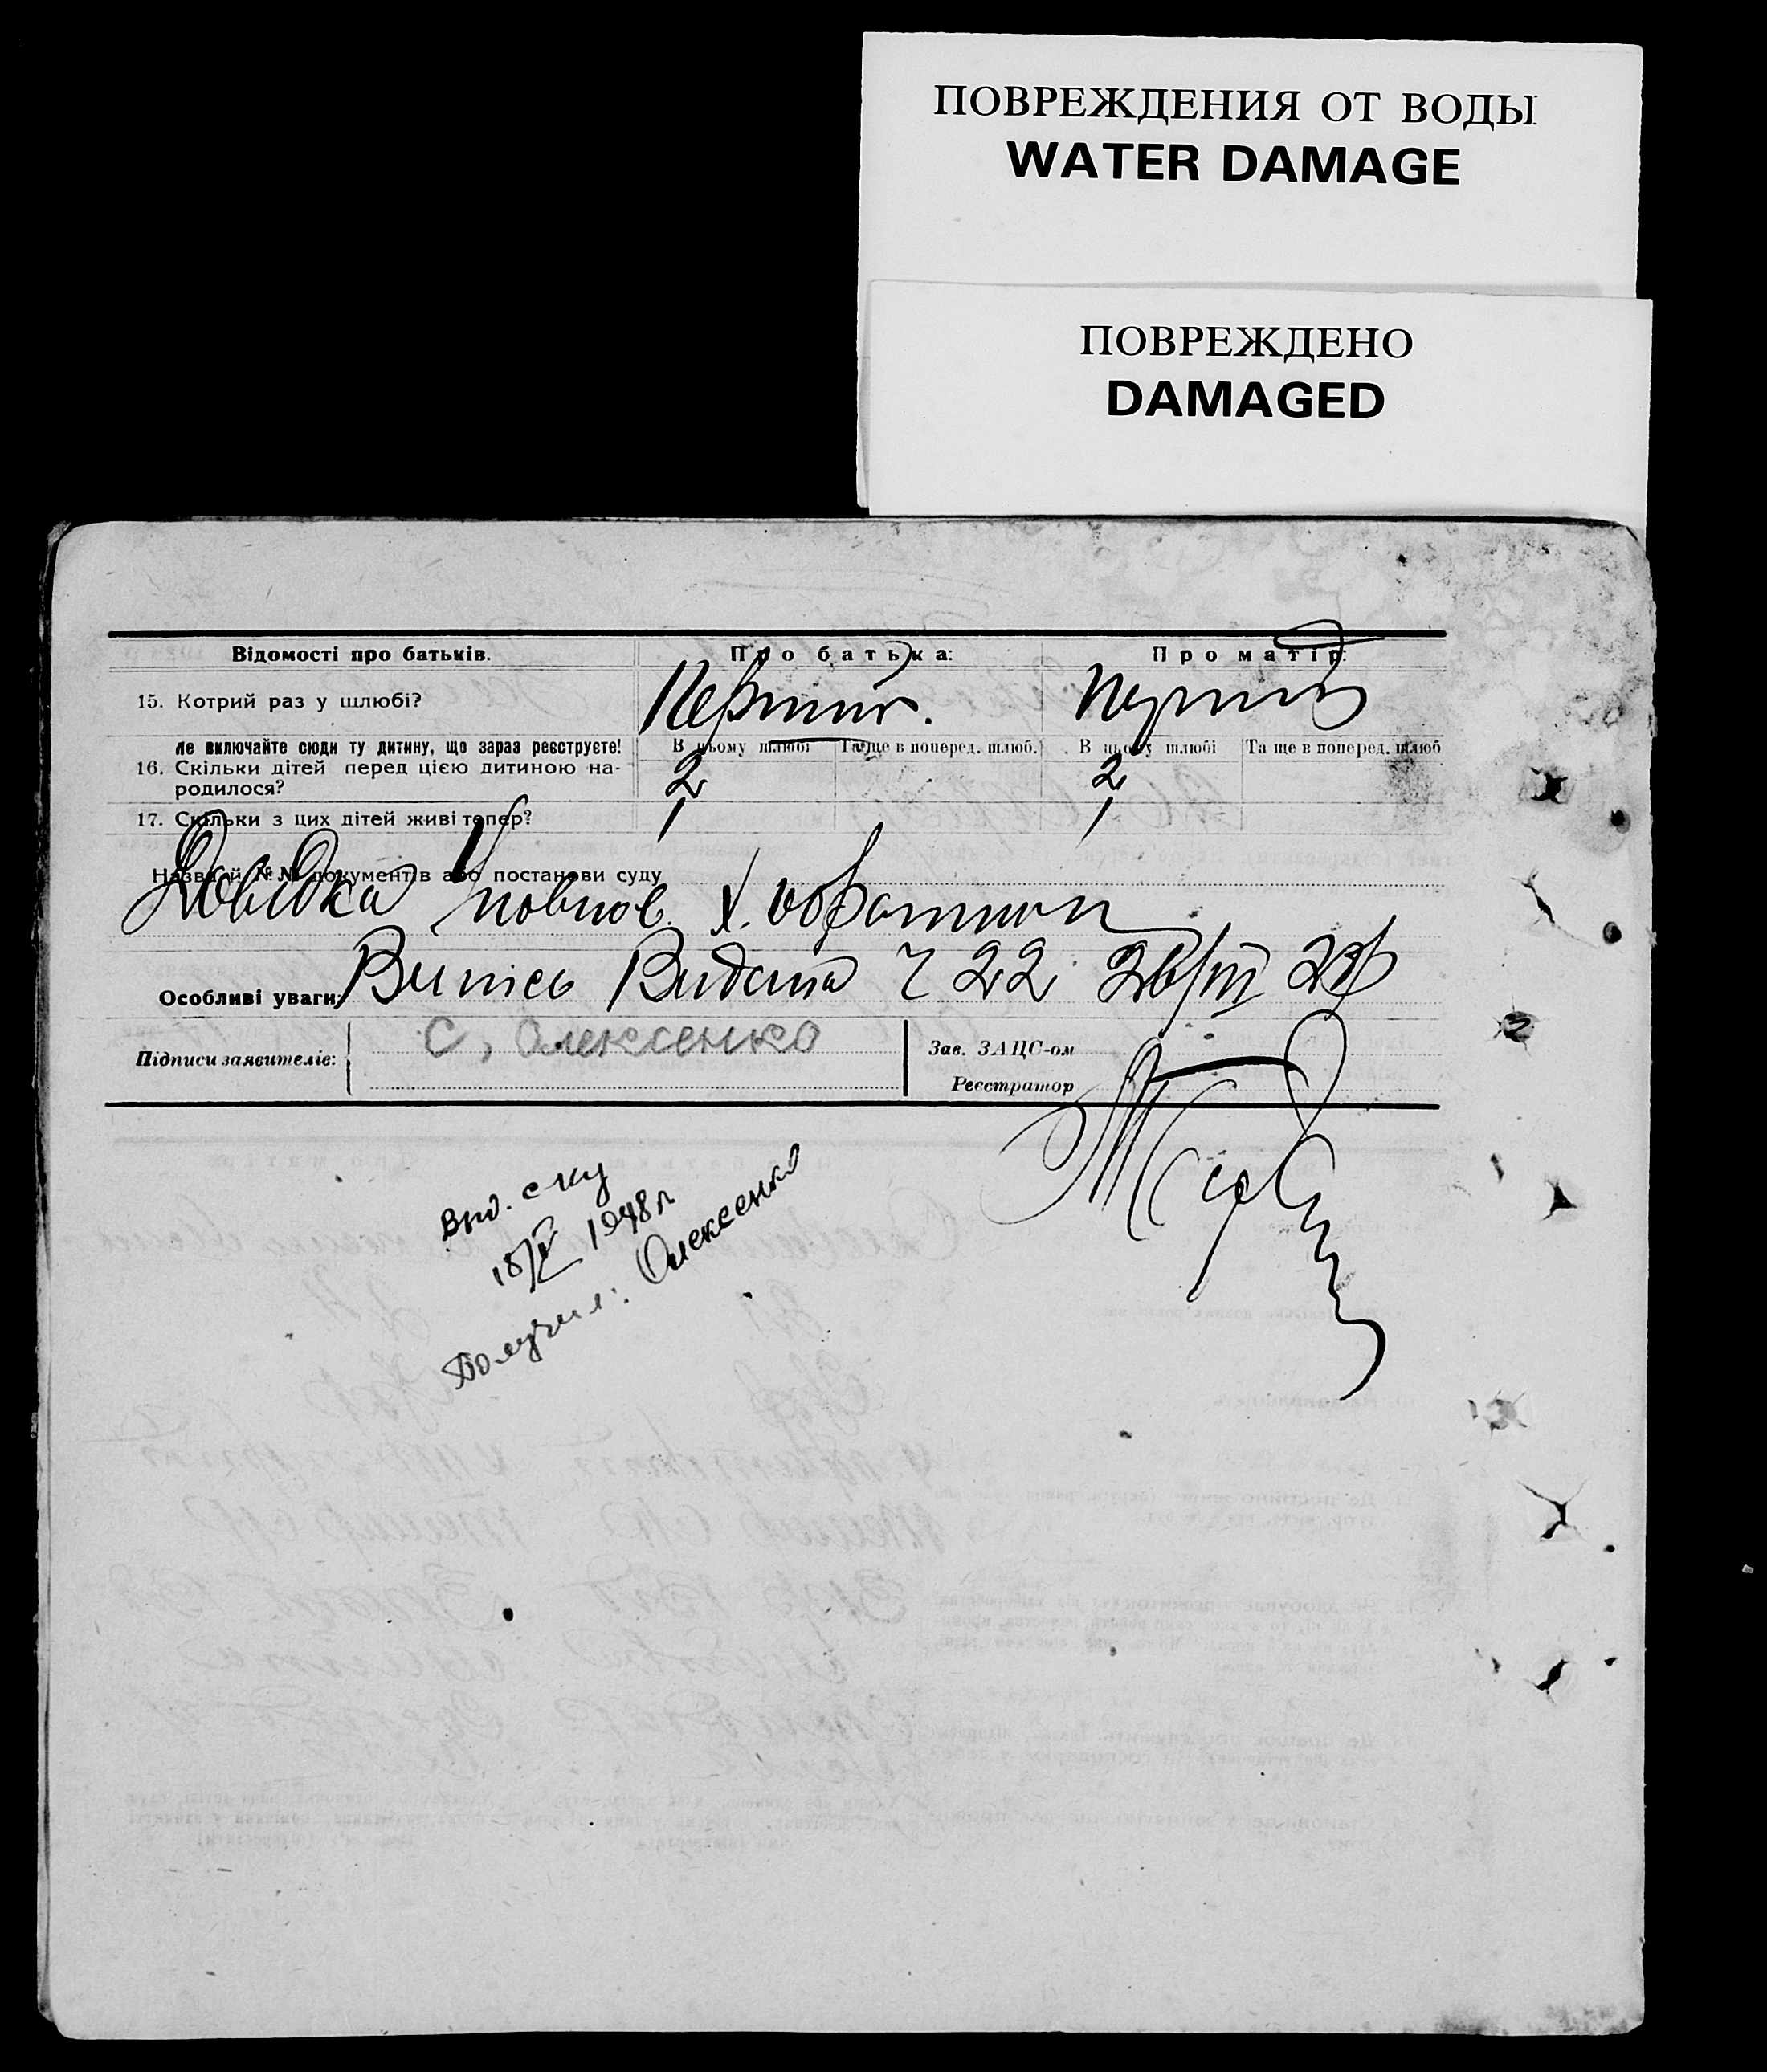 ПОВРЕЖДЕНИЯ ОТ ВОДЫ
WATER DAMAGE
ПОВРЕЖДЕНО
DAMAGED
Відомості про батьків. Про батька: Про матір:
15. Котрий раз у шлюбі? Перший. Перший
Не включайте сюди ту дитину, що зараз реєструєте! В цьому шлюбі Та ще в поперед. шлюб. В цьому шлюбі Та ще в поперед. шлюб
16. Скільки дітей перед цією дитиною на-
родилося? 2 2
17. Скільки з цих дітей живі тепер? 1 1
Назва й №№ документів або постанови суду
Довідка
Особливі уваги: Випись Видана 22 26/III
Підписи заявителів: С, Олексенко Зав. ЗАЦС-ом
Реєстратор
1948 г
Получил: Олексенко